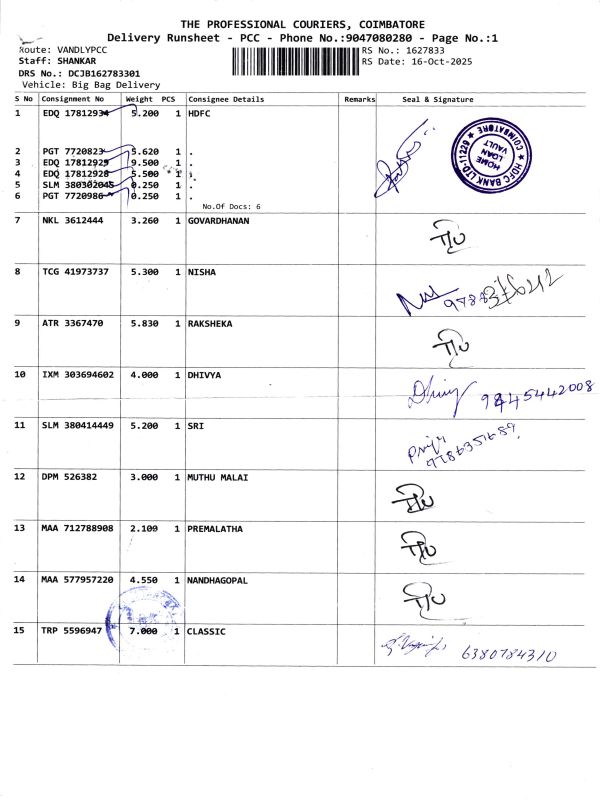 THE PROFESSIONAL COURIERS, COIMBATORE
Delivery Runsheet - PCC - Phone No.:9047080280 - Page No.:1
Route: VANDLYPCC
RS No.: 1627833
Staff: SHANKAR
RS Date: 16-Oct-2025
DRS No.: DCJB162783301
Vehicle: Big Bag Delivery
S No Consignment No Weight PCS Consignee Details Remarks Seal & Signature
1 EDQ 17812934 5.200 1 HDFC
COIMBATORE
HDFC BANK LTD-11229
HOME LOAN VAULT
2 PGT 7720823 5.620 1 .
3 EDQ 17812925 9.500 1 .
4 EDQ 17812928 5.500 1 .
5 SLM 380302045 0.250 1 .
6 PGT 7720986 0.250 1 .
No.Of Docs: 6
7 NKL 3612444 3.260 1 GOVARDHANAN
8 TCG 41973737 5.300 1 NISHA
9 ATR 3367470 5.830 1 RAKSHEKA
10 IXM 303694602 4.000 1 DHIVYA
Dhivy 9445442008
11 SLM 380414449 5.200 1 SRI
9786351689
12 DPM 526382 3.000 1 MUTHU MALAI
13 MAA 712788908 2.100 1 PREMALATHA
14 MAA 577957220 4.550 1 NANDHAGOPAL
15 TRP 5596947 7.000 1 CLASSIC
6380784310